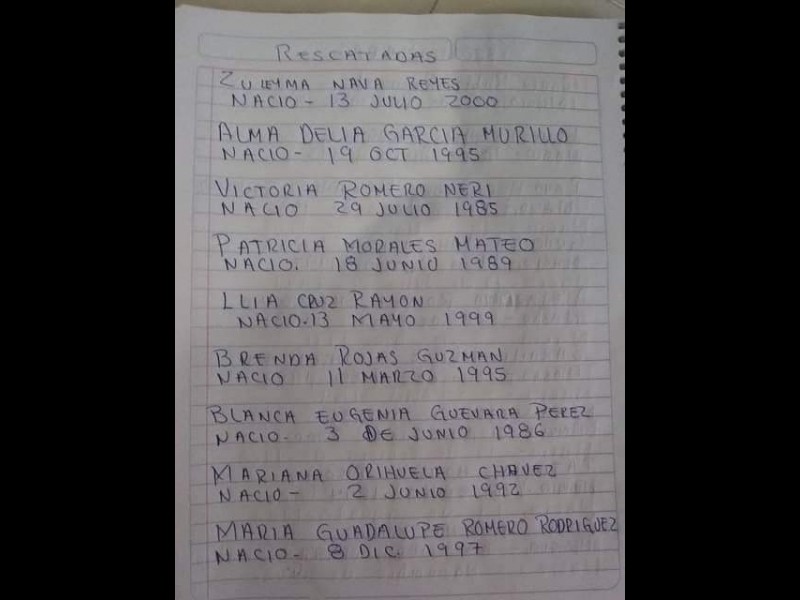 RESCATADAS
ZULEYMA NAVA REYES
NACIO - 13 JULIO 2000
ALMA DELIA GARCIA MURILLO
NACIO - 19 OCT 1995
VICTORIA ROMERO NERI
NACIO 29 JULIO 1985
PATRICIA MORALES MATEO
NACIO. 18 JUNIO 1989
LLIA CRUZ RAYON
NACIO-13 MAYO 1999
BRENDA ROJAS GUZMAN
NACIO 11 MARZO 1995
BLANCA EUGENIA GUEVARA PEREZ
NACIO - 3 DE JUNIO 1986
MARIANA ORIHUELA CHAVEZ
NACIO - 2 JUNIO 1992
MARIA GUADALUPE ROMERO RODRIGUEZ
NACIO - 8 DIC. 1997